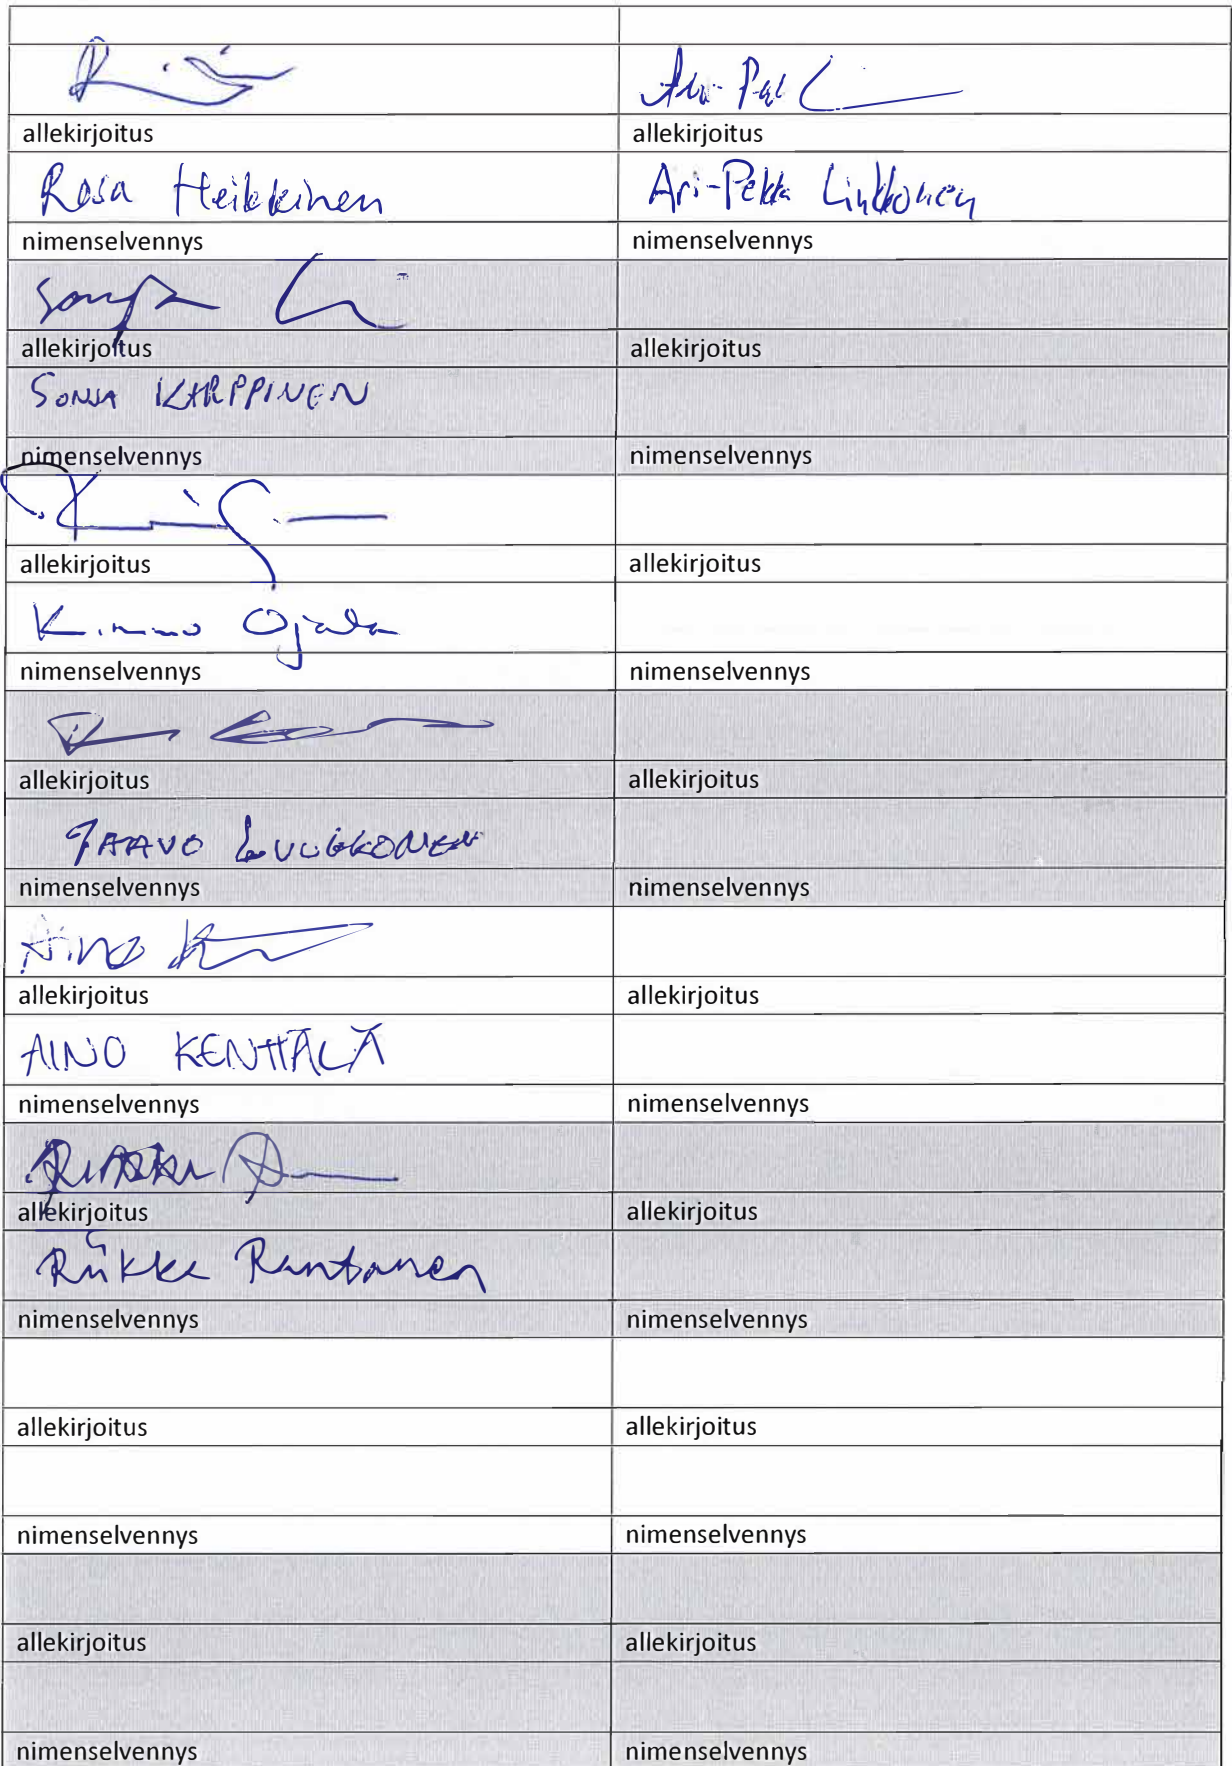 Ari-Pek
allekirjoitus allekirjoitus
Rosa Heikkinen Ari-Pekka Linkkonen
nimenselvennys nimenselvennys
Sonja
allekirjoitus allekirjoitus
SONJA KARPPINEN
nimenselvennys nimenselvennys
allekirjoitus allekirjoitus
Kimmo Ojala
nimenselvennys nimenselvennys
allekirjoitus allekirjoitus
PAAVO
nimenselvennys nimenselvennys
Aino
allekirjoitus allekirjoitus
AINO KENTTÄLÄ
nimenselvennys nimenselvennys
Riikka
allekirjoitus allekirjoitus
Riikka Rantanen
nimenselvennys nimenselvennys
allekirjoitus allekirjoitus
nimenselvennys nimenselvennys
allekirjoitus allekirjoitus
nimenselvennys nimenselvennys